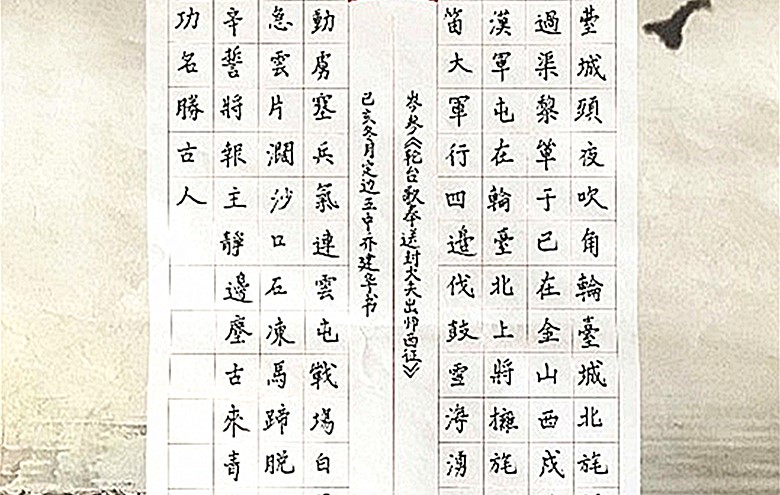 臺城頭夜吹角輪臺城北旄
過渠黎單于已在金山西戍
漢軍屯在輪臺北上將擁旄
笛大軍行四邊伐鼓雪海湧
岑参《轮台歌奉送封大夫出师西征》
己亥冬月定边五中乔建华书
動虜塞兵氣連雲屯戰場白
急雲片濶沙口石凍馬蹄脱
辛誓將報主靜邊塵古來青
功名勝古人